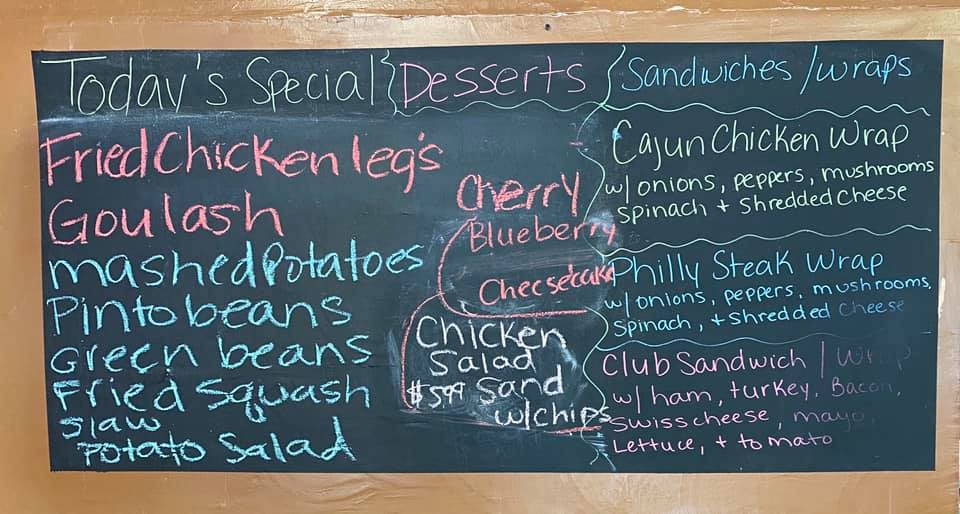 Today's Special
Fried Chicken leg's
Goulash
mashed Potatoes
Pinto beans
Green beans
Fried Squash
slaw
Potato Salad
Desserts
Cherry
Blueberry
Cheesecake
Chicken
Salad
$5.99 Sand
w/chips
Sandwiches / wraps
Cajun Chicken Wrap
w/ onions, peppers, mushrooms
spinach + Shredded Cheese
Philly Steak Wrap
w/ onions, peppers, mushrooms,
Spinach, + Shredded Cheese
Club Sandwich / Wrap
w/ ham, turkey, Bacon,
Swiss cheese, mayo,
Lettuce, + tomato